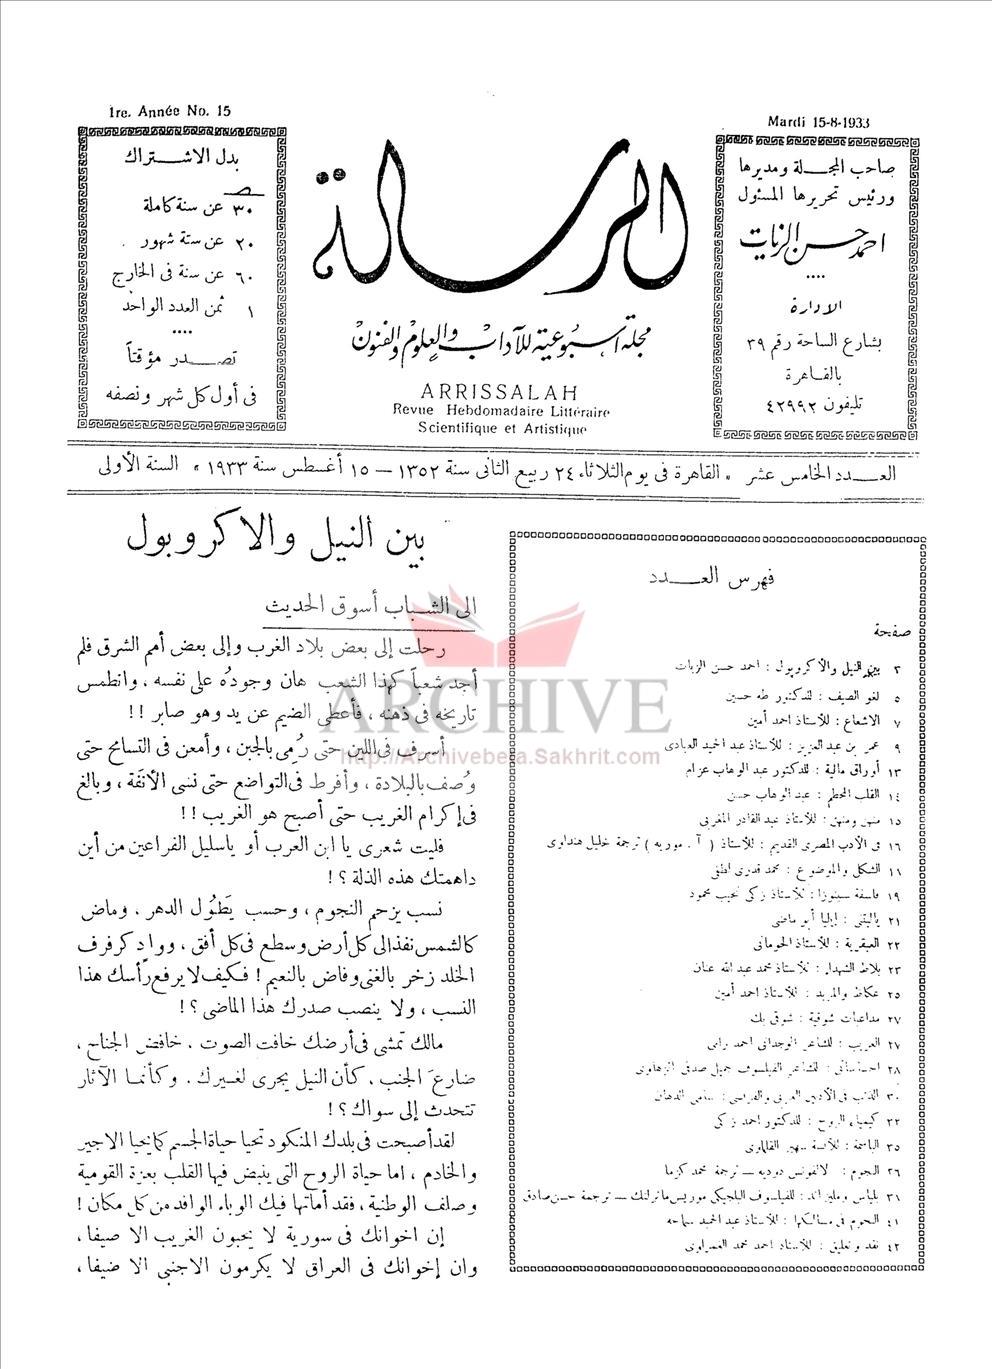 1re. Année No. 15
بدل الاشتراك
٣٠ عن سنة كاملة
٢٠ عن ستة شهور
٦٠ عن سنة فى الخارج
١ ثمن العدد الواحد
تصدر مؤقتاً
فى أول كل شهر ونصفه
الرسالة
مجلة أسبوعية للآداب والعلوم والفنون
ARRISSALAH
Revue Hebdomadaire Littéraire
Scientifique et Artistique
Mardi 15-8-1933
صاحب المجلة ومديرها
ورئيس تحريرها المسئول
احمد حسن الزيات
الادارة
بشارع الساحة رقم ٣٩
بالقاهرة
تليفون ٤٢٩٩٢
العدد الخامس عشر « القاهرة فى يوم الثلاثاء ٢٤ ربيع الثانى سنة ١٣٥٢ — ١٥ أغسطس سنة ١٩٣٣ » السنة الأولى
فهرس العدد
صفحة
٣ بين النيل والأكروبول : احمد حسن الزيات
٥ لغو الصيف : للدكتور طه حسين
٧ الاشعاع : للأستاذ احمد أمين
٩ عمر بن عبد العزيز : للأستاذ عبد الحميد العبادى
١٣ أوراق مالية : للدكتور عبد الوهاب عزام
١٤ القلب المحطم : عبد الوهاب حسن
١٥ منهن ومنهن : للأستاذ عبد القادر المغربى
١٦ فى الأدب المصرى القديم : للأستاذ ( آ . موريه ) ترجمة خليل هنداوى
الشكل والموضوع : محمد قدرى لطفى
١٩ فلسفة سبينوزا : للأستاذ زكى نجيب محمود
٢١ ياليتنى : إيليا أبو ماضى
٢٢ العبقرية : للأستاذ الحومانى
٢٣ بلاط الشهداء : للأستاذ محمد عبد الله عنان
٢٥ عكاظ والمربد : للأستاذ احمد أمين
٢٧ مداعبات شوقية : شوقى بك
٢٧ الغريب : للشاعر الوجدانى احمد رامى
٢٨ احساساتى : للشاعر الفيلسوف جميل صدقى الزهاوى
٣٠ الذئب فى الأدبين العربى والفرنسى : سامى الدهان
٣٢ كيمياء الروح : للدكتور احمد زكى
٣٥ الباسمة : للآنسة سهير القلماوى
٣٦ النجوم : لالفونس دوديه — ترجمة محمد كزما
٣١ بلياس ومليزاند : للفيلسوف البلجيكى موريس ماترلنك — ترجمة حسن صادق
٤١ النجوم فى مسالكها : للأستاذ عبد الحميد سماحه
٤٢ نقد وتعليق : للأستاذ احمد محمد الغمراوى
بين النيل والاكروبول
الى الشباب أسوق الحديث
رحلت إلى بعض بلاد الغرب وإلى بعض أمم الشرق فلم
أجد شعباً كهذا الشعب هان وجودُه على نفسه ، وانطمس
تاريخه فى ذهنه ، فأعطى الضيم عن يد وهو صابر !!
أسرف فى اللين حتى رُمى بالجبن ، وأمعن فى التسامح حتى
وُصف بالبلادة ، وأفرط فى التواضع حتى نسى الأنفة ، وبالغ
فى إكرام الغريب حتى أصبح هو الغريب !!
فليت شعرى يا ابن العرب أو ياسليل الفراعين من أين
داهمتك هذه الذلة ؟ !
نسب يزحم النجوم ، وحسب يَطُول الدهر . وماض
كالشمس نفذ الى كل أرض وسطع فى كل أفق ، وواد كرفرف
الخلد زخر بالغنى وفاض بالنعيم ! فكيف لا يرفع رأسك هذا
النسب ، ولا ينصب صدرك هذا الماضى ؟ !
مالك تمشى فى أرضك خافت الصوت . خافض الجناح ،
ضارعَ الجنب ، كأن النيل يجرى لغيرك . وكأنما الآثار
تتحدث إلى سواك ؟ !
لقد أصبحت فى بلدك المنكود تحيا حياة الجسم كما يحيا الاجير
والخادم ، اما حياة الروح التى ينبض فيها القلب بعزة القومية
وصلف الوطنية ، فقد أماتها فيك الوباء الوافد من كل مكان !
إن اخوانك فى سورية لا يحبون الغريب الا صيفا ،
وان إخوانك فى العراق لا يكرمون الاجنبى الا ضيفا ،
ARCHIVE
http://Archivebeta.Sakhrit.com